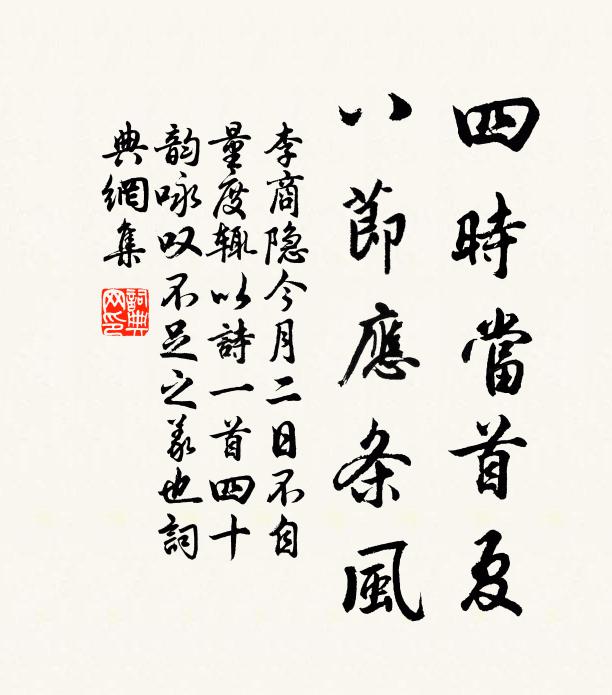 四時當首夏
八節應条風
李商隐今月二日不自
量度輒以詩一首四十
韵咏叹不足之義也詞
典網集
詞典網印